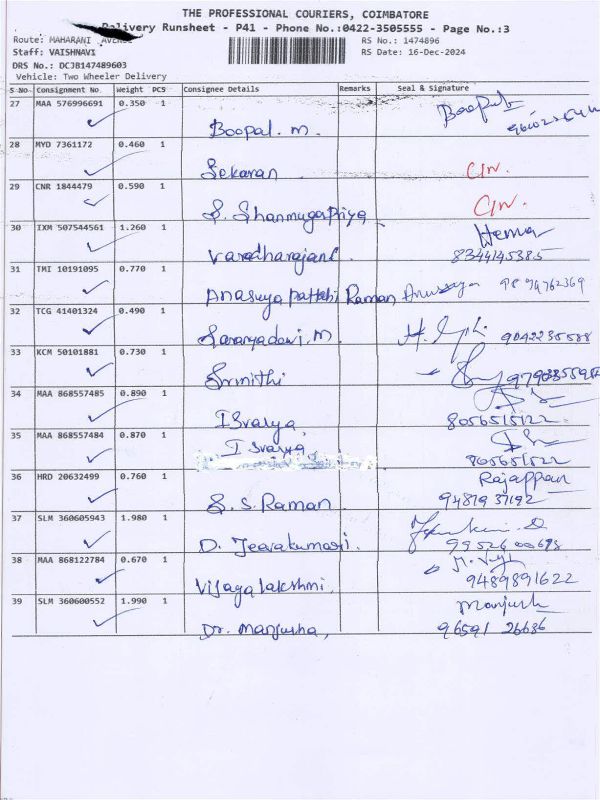 THE PROFESSIONAL COURIERS, COIMBATORE
Delivery Runsheet - P41 - Phone No.:0422-3505555 - Page No.:3
Route: MAHARANI AVENUE
RS No.: 1474896
Staff: VAISHNAVI
RS Date: 16-Dec-2024
DRS No.: DCJB147489603
Vehicle: Two Wheeler Delivery
S No Consignment No Weight PCS Consignee Details Remarks Seal & Signature
27 MAA 576996691 0.350 1
Boopal. M.
28 MYD 7361172 0.460 1
Sekaran
29 CNR 1844479 0.590 1
S. Shanmugapriya
30 IXM 507544561 1.260 1 Hema
Varadharajan 8344145385
31 TMI 10191095 0.770 1
Anasuya Pattabi Raman
32 TCG 41401324 0.490 1
Saranyadevi. M 9042235588
33 KCM 50101881 0.730 1
Srmithi
34 MAA 868557485 0.890 1
Isvarya 8056515122
35 MAA 868557484 0.870 1
Isvarya 805651522
36 HRD 20632499 0.760 1 Rajappan
S. S. Raman 9487937192
37 SLM 360605943 1.980 1
D. Jeevakumari. 99526 00698
38 MAA 868122784 0.670 1
Vijayalakshmi, 9489891622
39 SLM 360600552 1.990 1 Manjush
Dr. Manjusha, 96591 26686